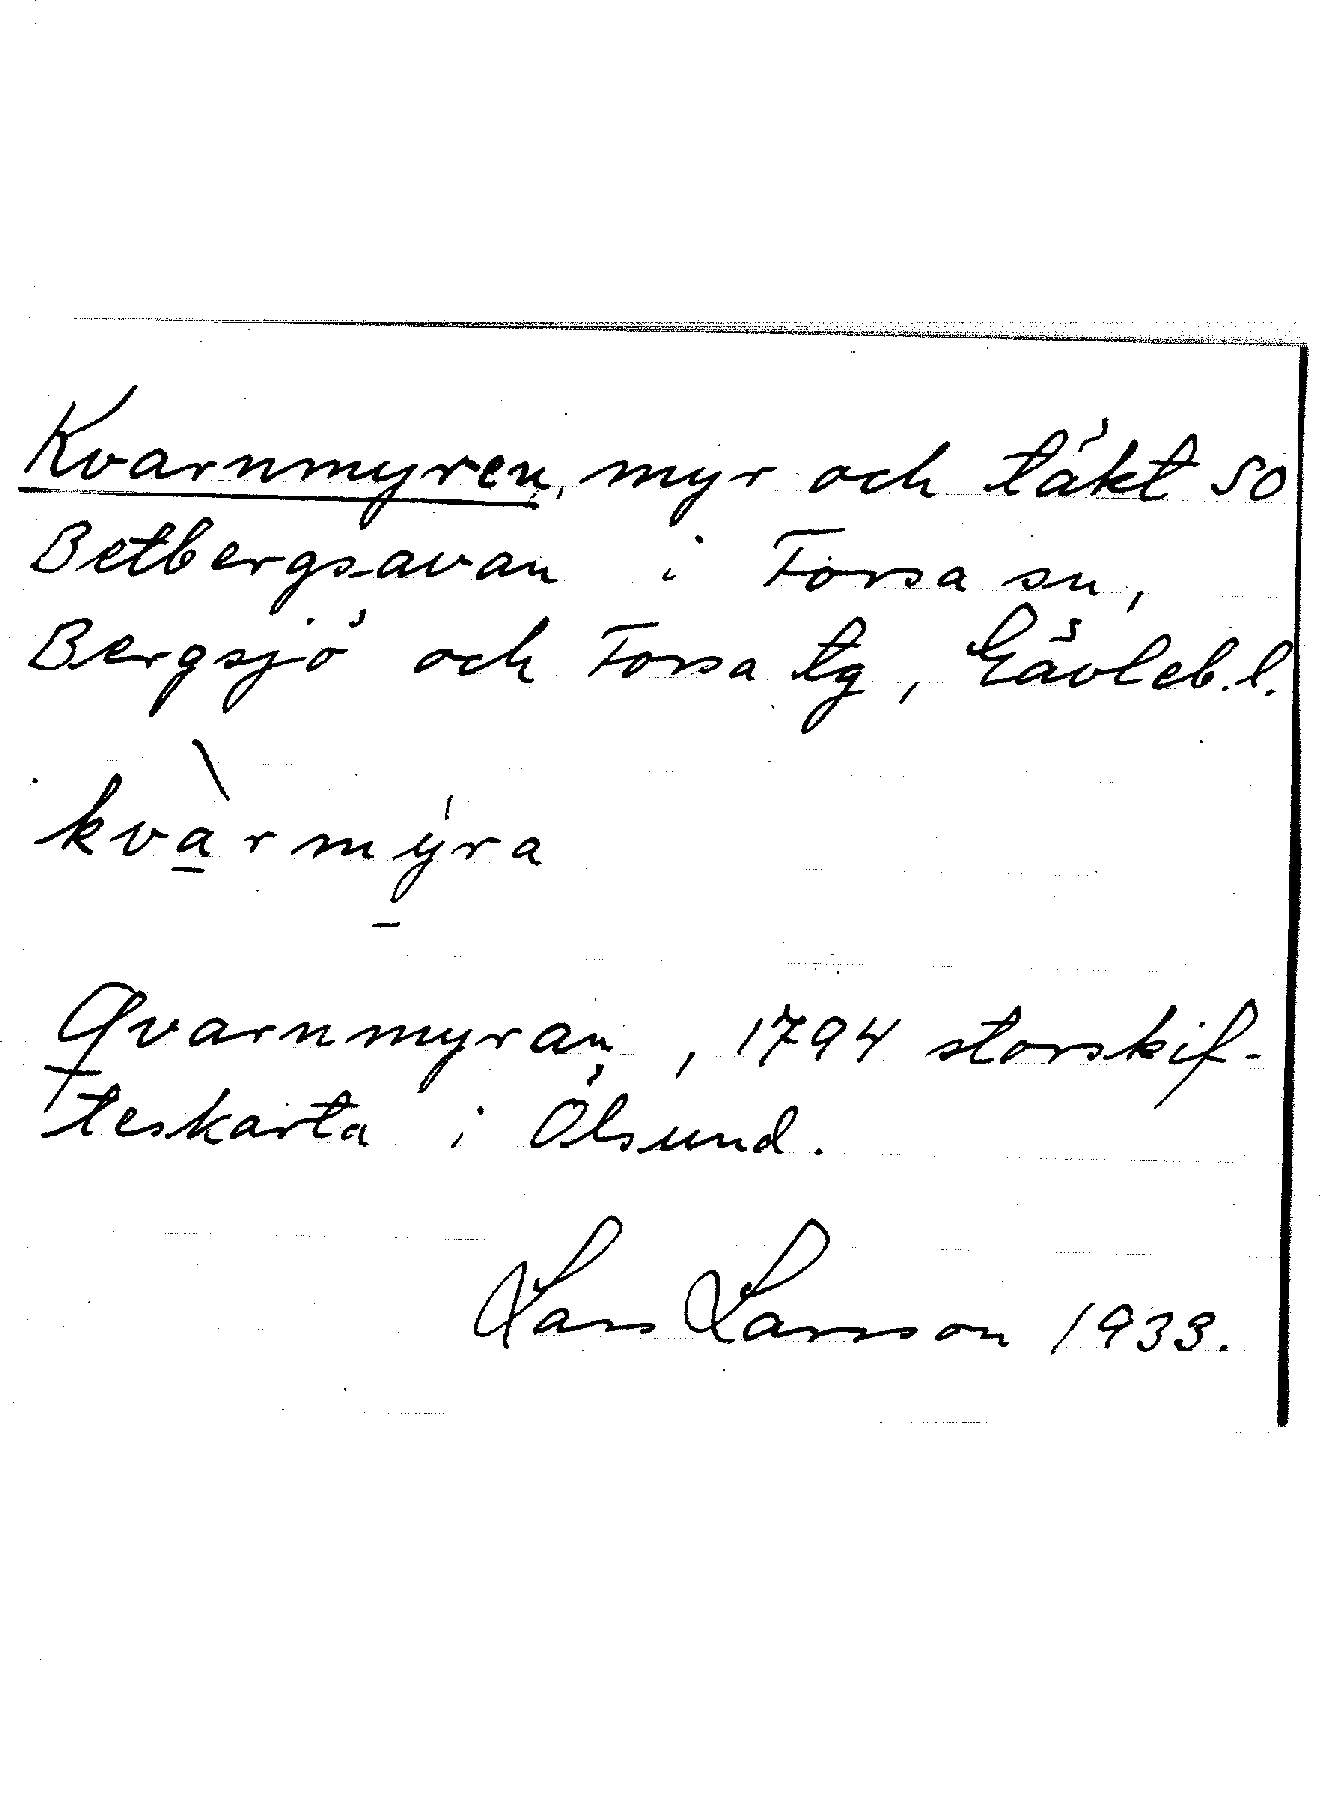 Kvarnmyren, myr och täkt SO
Betbergsavan i Forsa sn,
Bergsjö och Forsa tg, Gävleb.l.
kvàrmýra
Qvarnmyran, 1794 storskif-
teskarta i Ölsund.
Lars Larsson 1933.